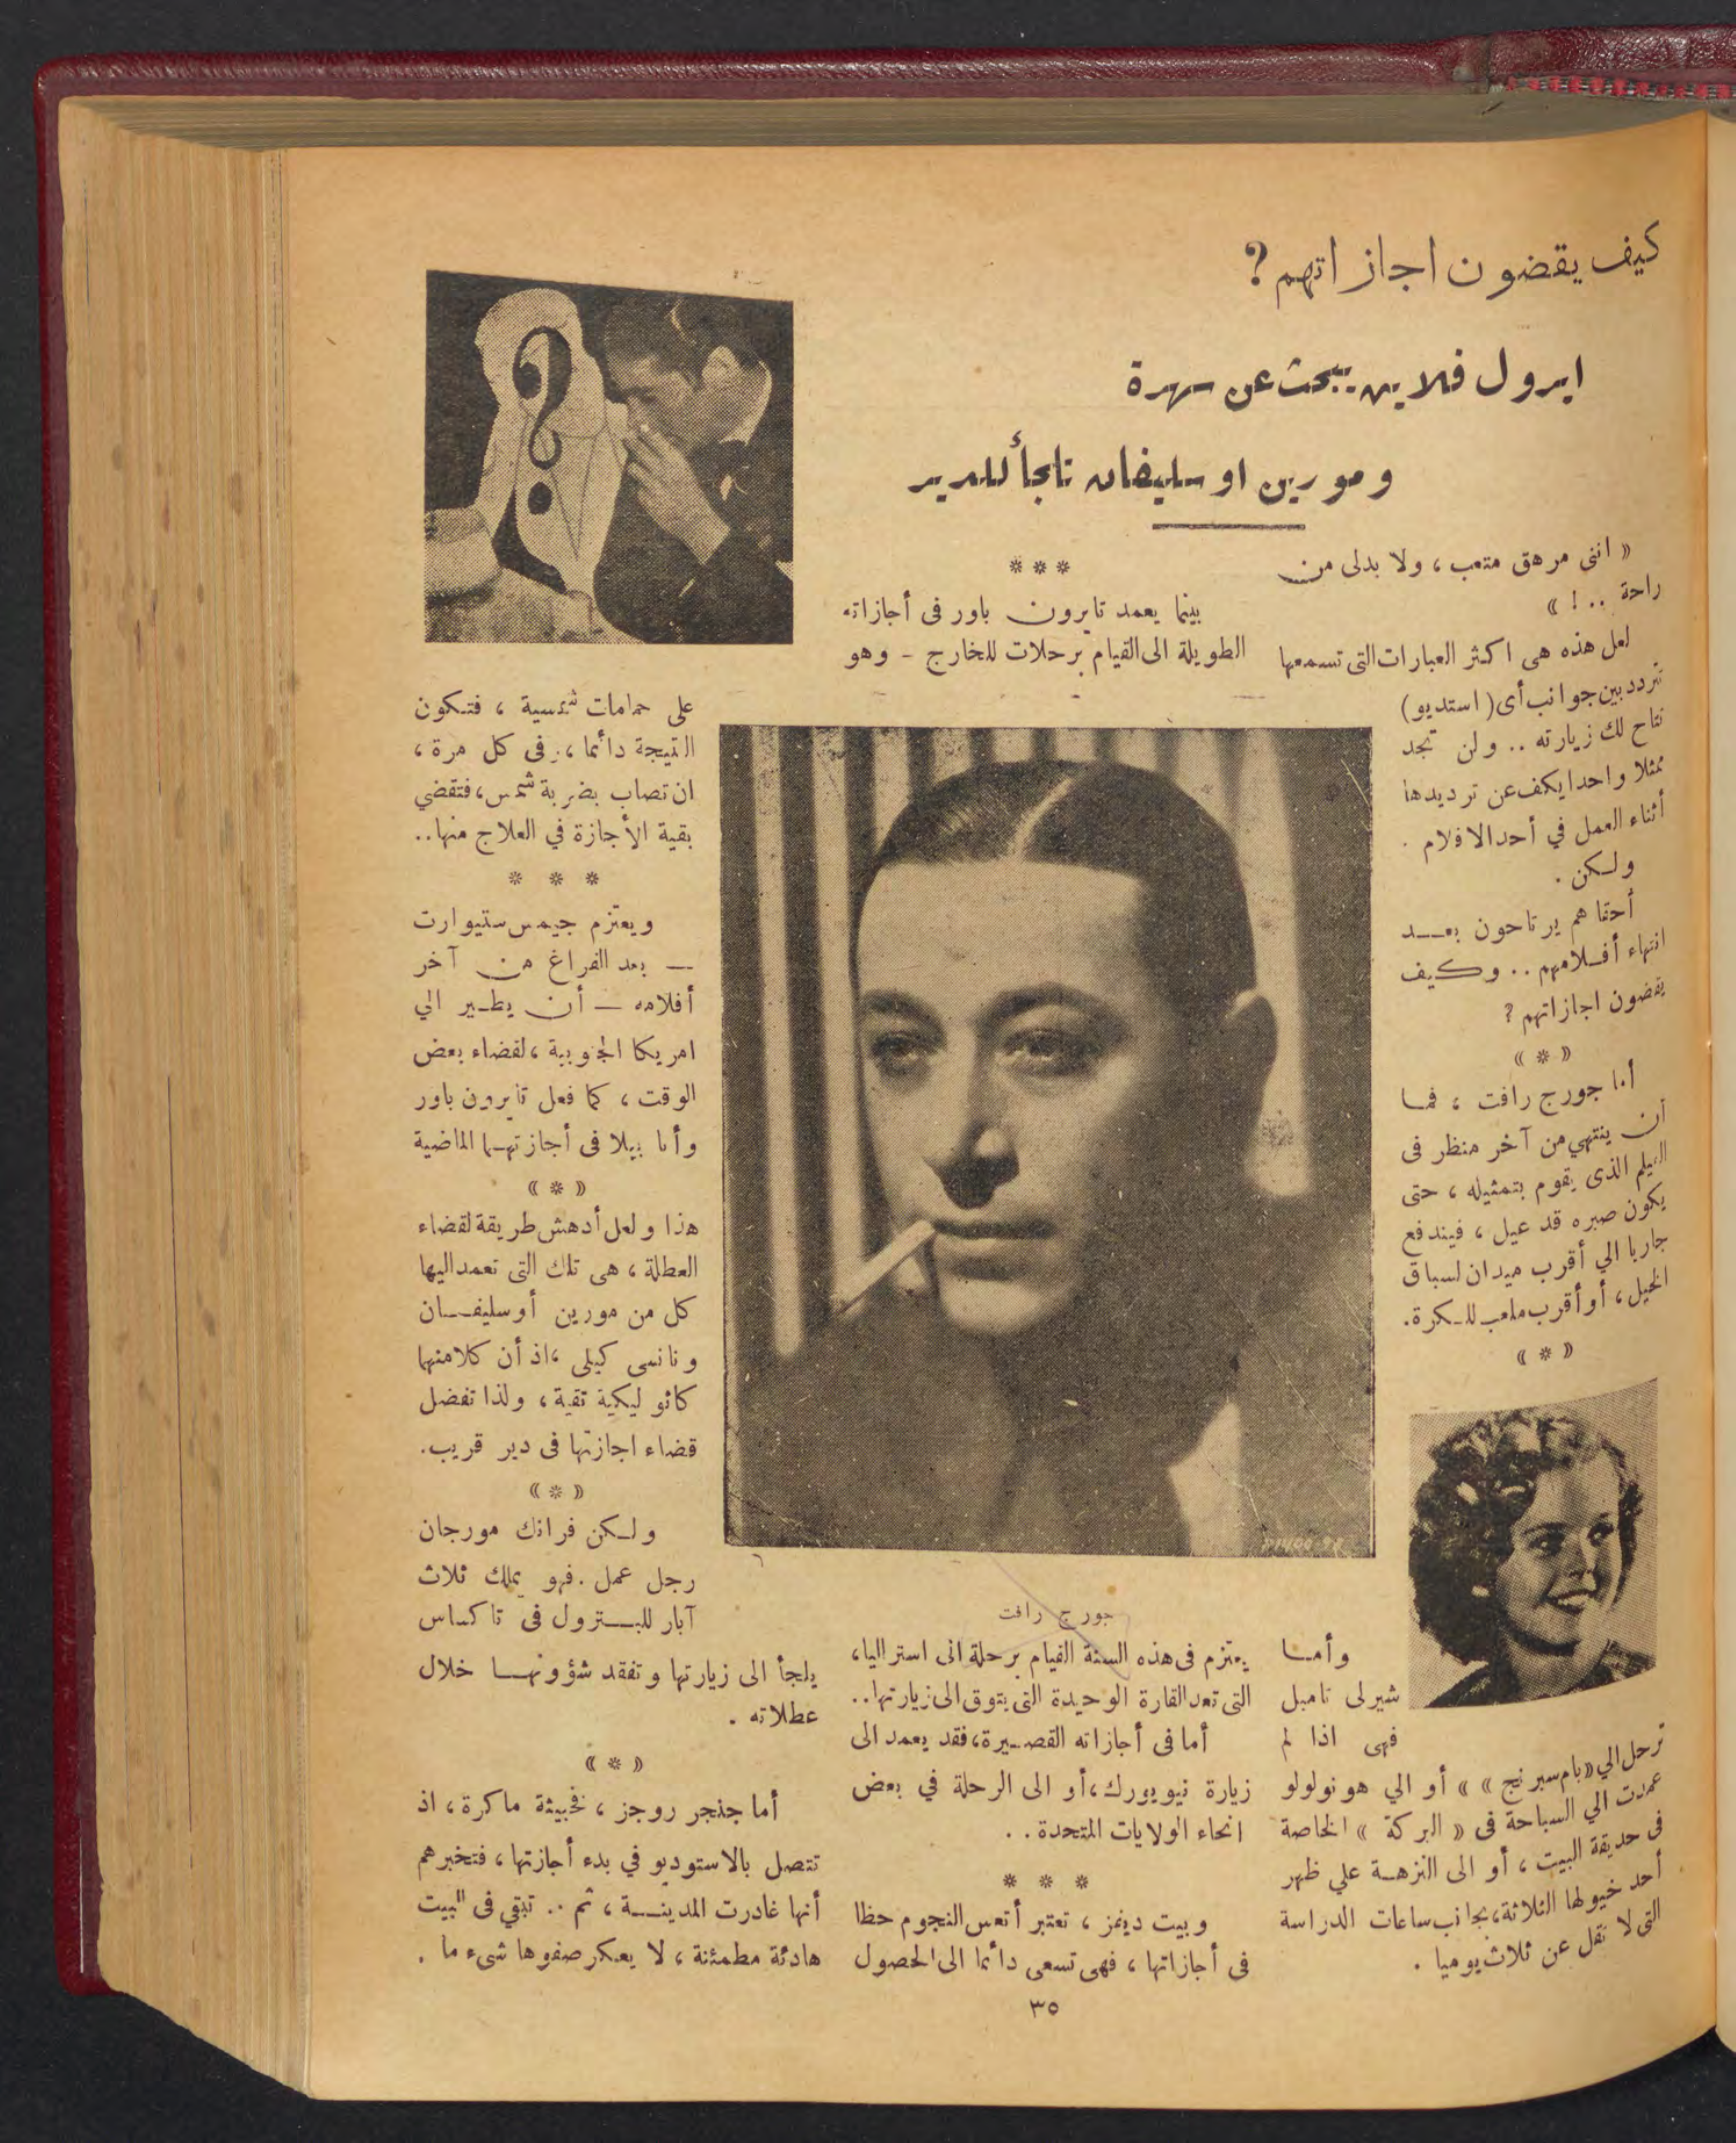 كيف يقضون اجازاتهم ؟
ايرول فلاين يبحث عن سهرة
ومورين اوسليفان تلجأ للدير
« انني مرهق متعب ، ولا بدلى من
راحة .. ! »
لعل هذه هى اكثر العبارات التى تسمعها
تتردد بين جوانب أى ( استديو )
تتاح لك زيارته .. ولن تجد
ممثلا واحدا يكف عن ترديدها
أثناء العمل في أحد الافلام .
ولكن .
أحقا هم يرتاحون بعد
انتهاء أفلامهم .. وكيف
يقضون اجازاتهم ؟
« * »
أما جورج رافت ، فما
أن ينتهي من آخر منظر فى
الفيلم الذى يقوم بتمثيله ، حتى
يكون صبره قد عيل ، فيندفع
جاريا الي أقرب ميدان لسباق
الخيل ، أو أقرب ملعب للكرة .
« * »
وأما
شيرلى تامبل
فهى اذا لم
ترحل الي « بام سبرنج » » أو الي هونولولو
عمدت الي السباحة فى « البركة » الخاصة
فى حديقة البيت ، أو الى النزهة علي ظهر
أحد خيولها الثلاثة ، بجانب ساعات الدراسة
التى لا تقل عن ثلاث يوميا .
* * *
بينما يعمد تايرون باور فى أجازاته
الطويلة الى القيام برحلات للخارج - وهو
جورج رافت
يعتزم فى هذه السنة القيام برحلة الى استراليا ،
التى تعد القارة الوحيدة التى يتوق الى زيارتها ..
أما فى أجازاته القصيرة ، فقد يعمد الى
زيارة نيويورك ، أو الى الرحلة في بعض
انحاء الولايات المتحدة ..
* * *
وبيت ديفز ، تعتبر أتعس النجوم حظا
فى أجازاتها ، فهى تسعى دأئما الى الحصول
على حمامات شمسية ، فتكون
النتيجة دأئما ، فى كل مرة ،
ان تصاب بضربة شمس ، فتقضي
بقية الأجازة في العلاج منها ..
* * *
ويعتزم جيمس ستيوارت
— بعد الفراغ من آخر
أفلامه — أن يطير الي
امريكا الجنوبية ، لقضاء بعض
الوقت ، كما فعل تايرون باور
وأنا بيلا فى أجازتهما الماضية
« * »
هذا ولعل أدهش طريقة لقضاء
العطلة ، هى تلك التى تعمد اليها
كل من مورين أوسليفان
ونانسى كيلى ، اذ أن كلا منهما
كاثوليكية تقية ، ولذا تفضل
قضاء اجازتها فى دير قريب .
« * »
ولكن فرانك مورجان
رجل عمل . فهو يملك ثلاث
آبار للبترول فى تاكساس
يلجأ الى زيارتها وتفقد شؤونها خلال
عطلاته .
« * »
أما جنجر روجز ، فخبيثة ماكرة ، اذ
تتصل بالاستوديو في بدء أجازتها ، فتخبرهم
أنها غادرت المدينة ، ثم .. تبقي فى البيت
هادئة مطمئنة ، لا يعكر صفوها شىء ما .
٣٥